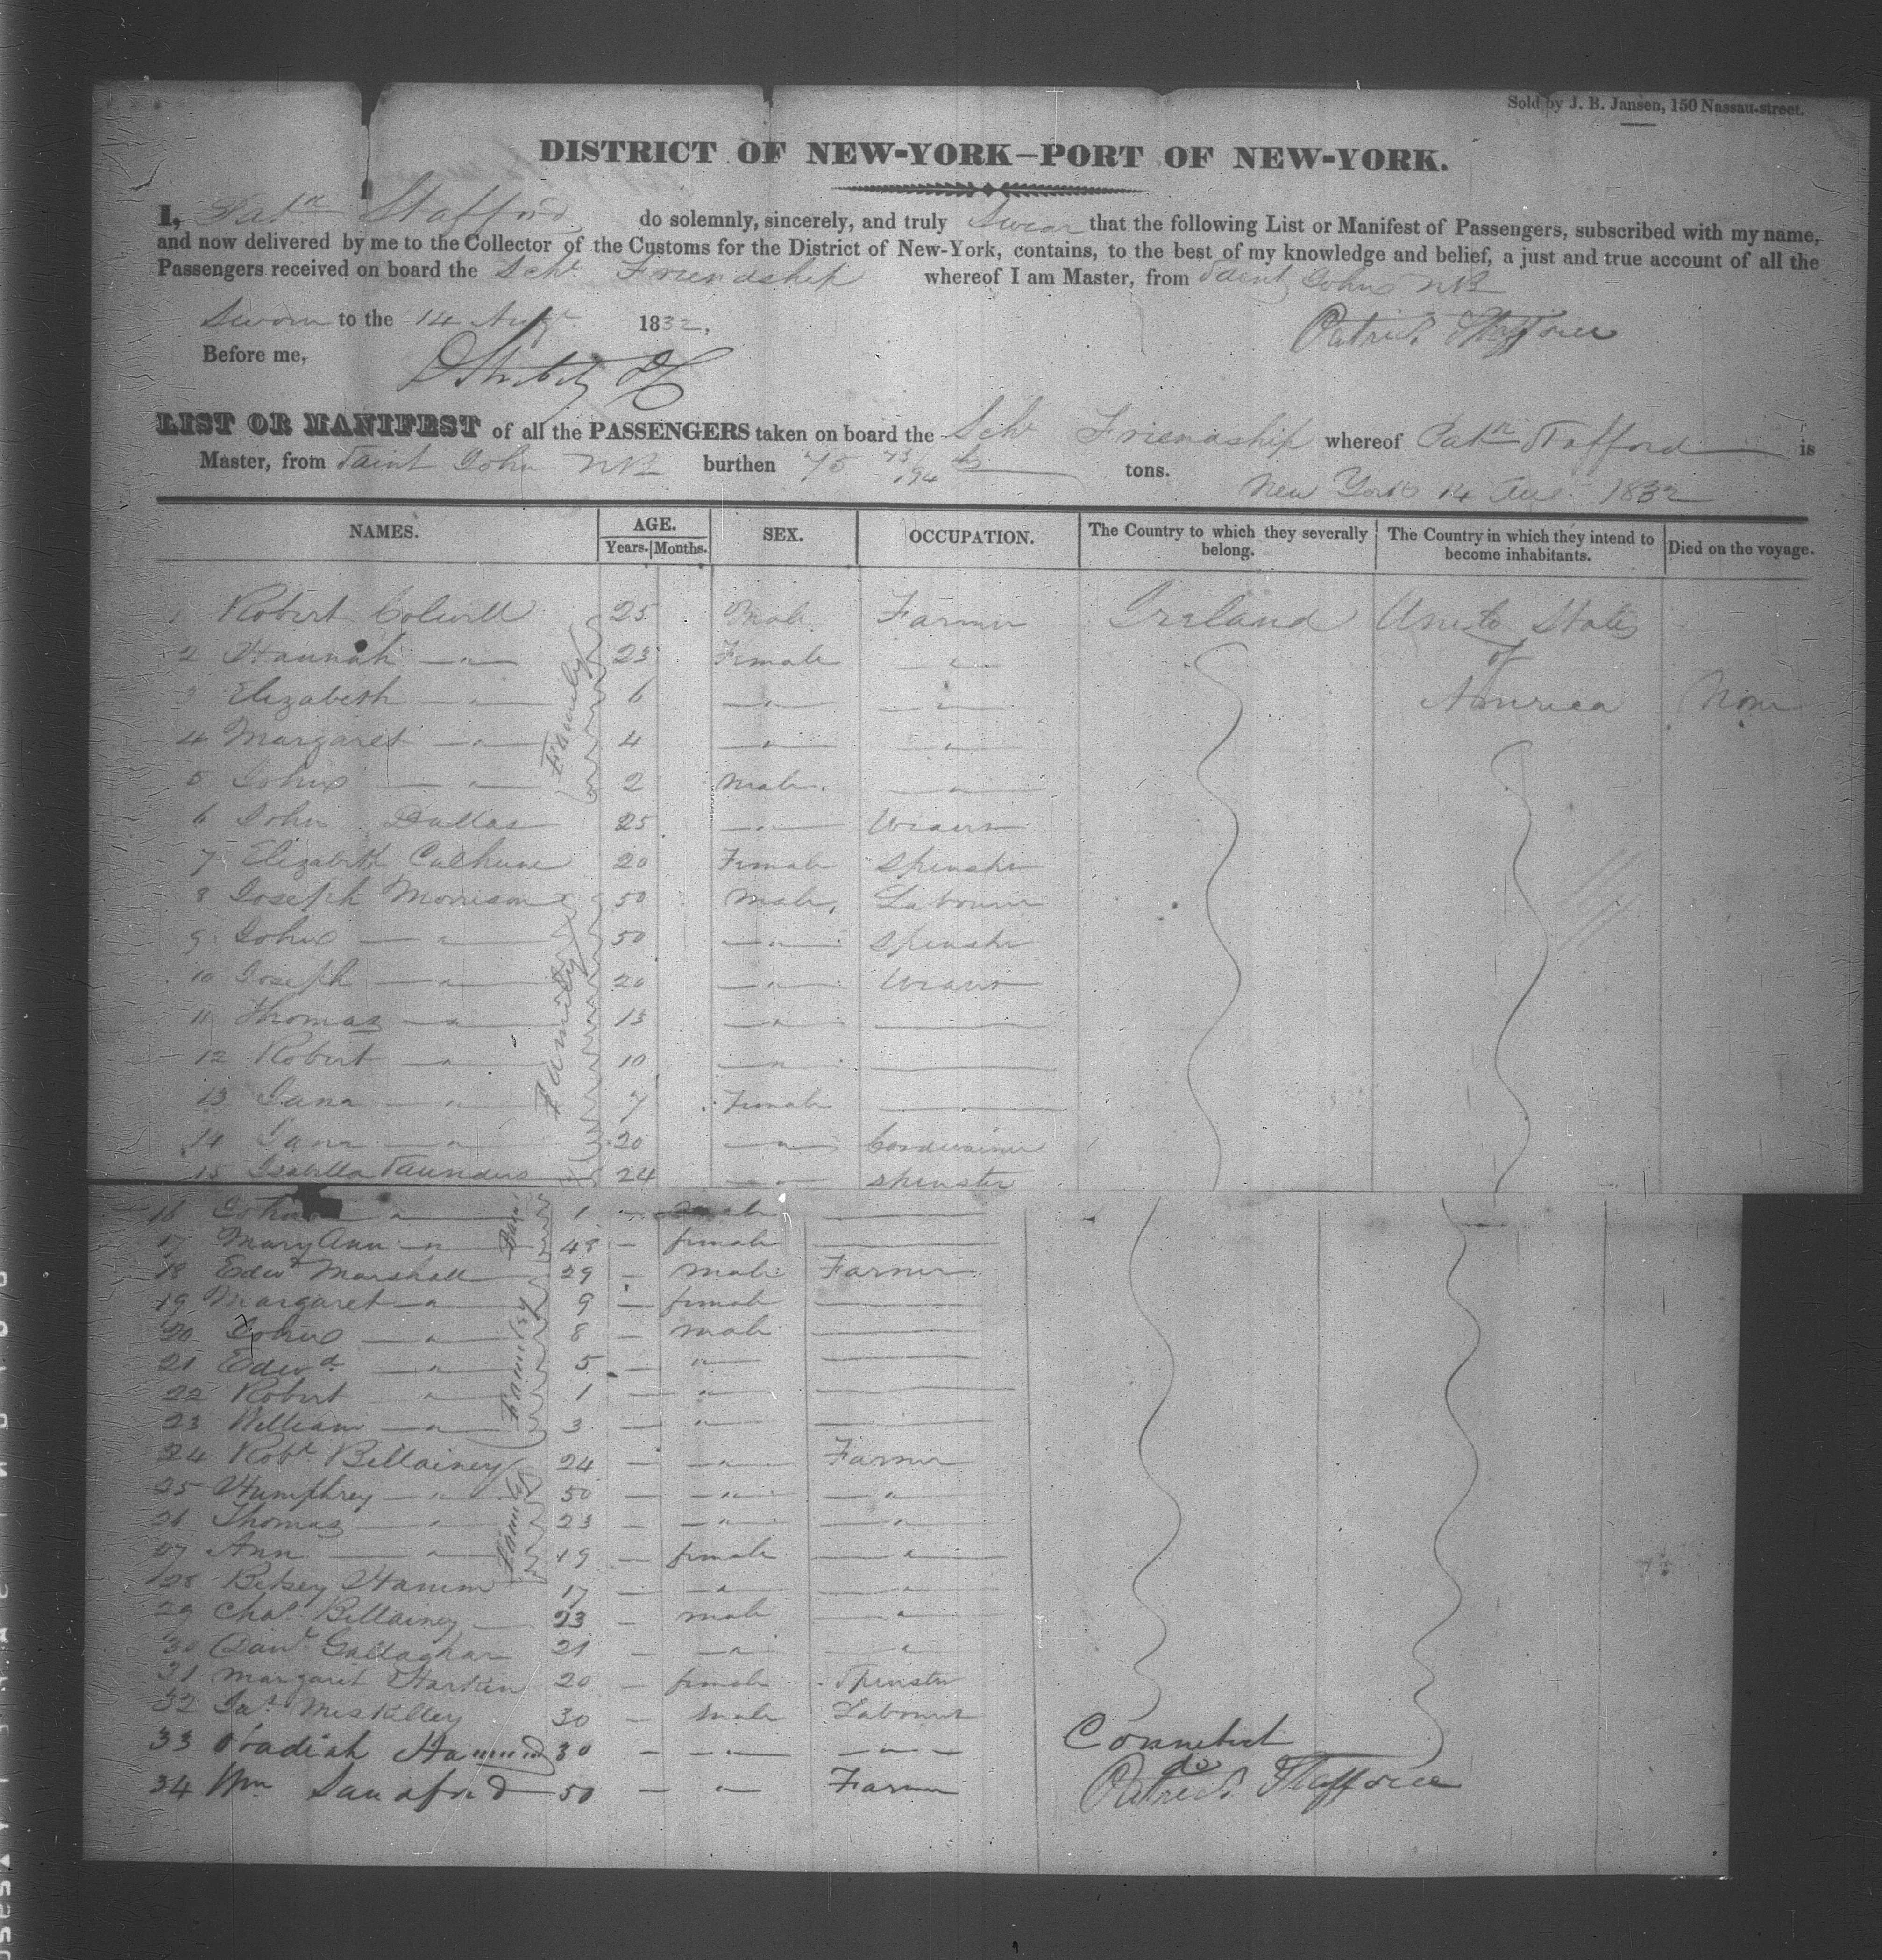 Sold by J. B. Jansen, 150 Nassau-street.
DISTRICT OF NEW-YORK—PORT OF NEW-YORK.
I, Patk Stafford do solemnly, sincerely, and truly Swear that the following List or Manifest of Passengers, subscribed with my name,
and now delivered by me to the Collector of the Customs for the District of New-York, contains, to the best of my knowledge and belief, a just and true account of all the
Passengers received on board the Schr Friendship whereof I am Master, from Saint John NB
Sworn to the 14 Augt 1832,
Patrick
Before me,
LIST OR MANIFEST of all the PASSENGERS taken on board the Schr Friendship whereof Patk Stafford is
Master, from Saint John NB burthen 75 73/94 tons.
New York 14 Aug 1832
NAMES. AGE. SEX. OCCUPATION. The Country to which they severally belong. The Country in which they intend to become inhabitants. Died on the voyage.
Years. Months.
1 Robert Colwill 25 Male Farmer Ireland United States
2 Hannah — " — 23 Female — " — of
3 Elizabeth — " — 6 — " — — " — America None
4 Margaret — " — 4 — " — — " —
5 John — " — 2 Male — " —
Family
6 John Dallas 25 — " — Weaver
7 Elizabeth Calhune 20 Female Spinster
8 Joseph Morrison 50 Male Labourer
9 John — " — 50 — " — Spinster
10 Joseph — " — 20 — " — Weaver
11 Thomas — " — 13 — " — —
12 Robert — " — 10 — " — —
13 Jane — " — 7 Female —
14 Jane — " — 20 — " — Cordwainer
Family
15 Isabella Saunders 24 — " — Spinster
16 John — " — 1 — male —
17 Mary Ann — " — 48 — female —
18 Edwd Marshall 29 — male Farmer
19 Margaret — " — 9 — female —
20 John — " — 8 — male —
21 Edwd — " — 5 — " —
22 Robert " 1 — " —
23 William — " — 3 — " —
Family
24 Robt Billainey 24 — — " — Farmer
25 Humphrey — " — 50 — — " — — " —
26 Thomas — " — 23 — — " — — " —
27 Ann — " — 19 — female — " —
Family
28 Betsey Hamm 17 — — " — — " —
29 Chas Billainey 23 — male — " —
30 Danl Gallaghar 21 — — " — — " —
31 Margaret Harkin 20 — female Spinster
32 Jas McSkilley 30 — Male Labourer
33 Obadiah 30 — — " — — " —
34 Wm Sandford 50 — " Farmer
Connecticut
do
Patrick